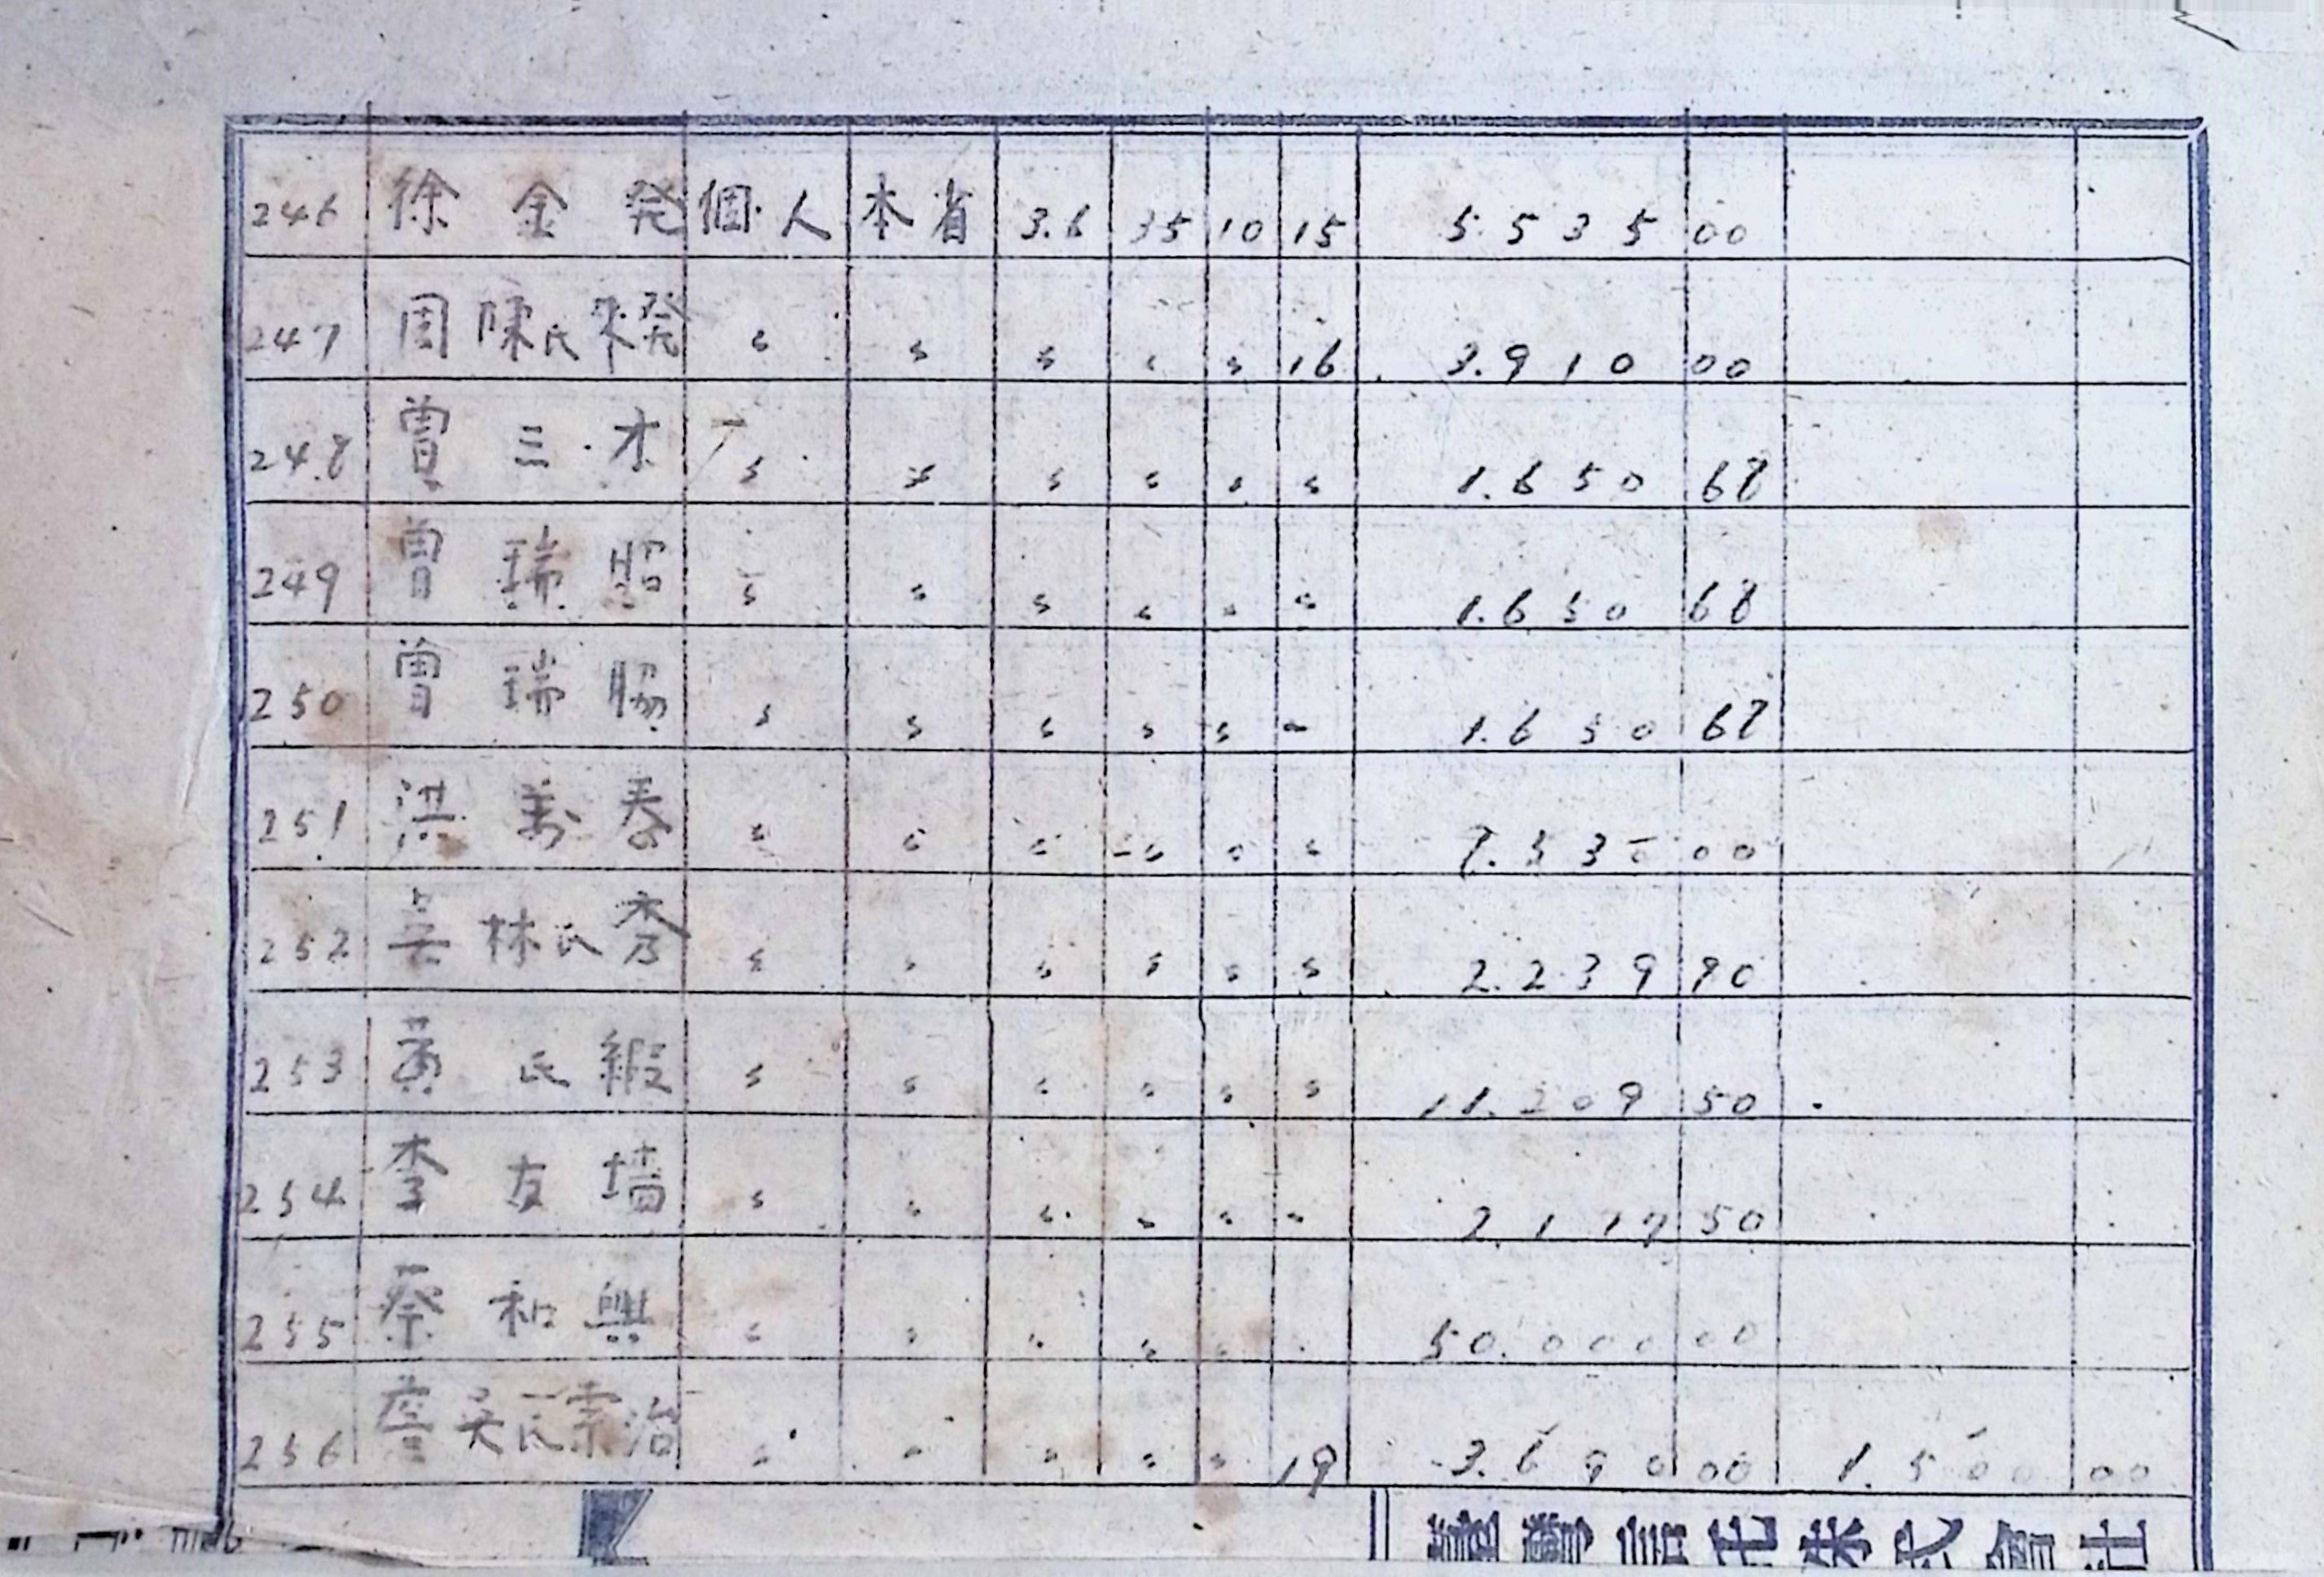 246 徐金発 個人 本省 3.6 35 10 15 5.535 00
247 周陳氏来発 〃 〃 〃 〃 〃 16 3.910 00
248 曾三才 〃 〃 〃 〃 〃 〃 1.650 68
249 曾瑞昭 〃 〃 〃 〃 〃 〃 1.650 68
250 曾瑞 〃 〃 〃 〃 〃 〃 1.650 68
251 洪萬春 〃 〃 〃 〃 〃 〃 00
252 吳林氏秀 〃 〃 〃 〃 〃 〃 2.239 90
253 黃氏緞 〃 〃 〃 〃 〃 〃 11.209 50
254 李友墻 〃 〃 〃 〃 〃 〃 2.117 50
255 蔡和興 〃 〃 〃 〃 〃 〃 50.000 00
256 詹吳氏素治 〃 〃 〃 〃 〃 19 3.690 00 1.500 00
株式會社